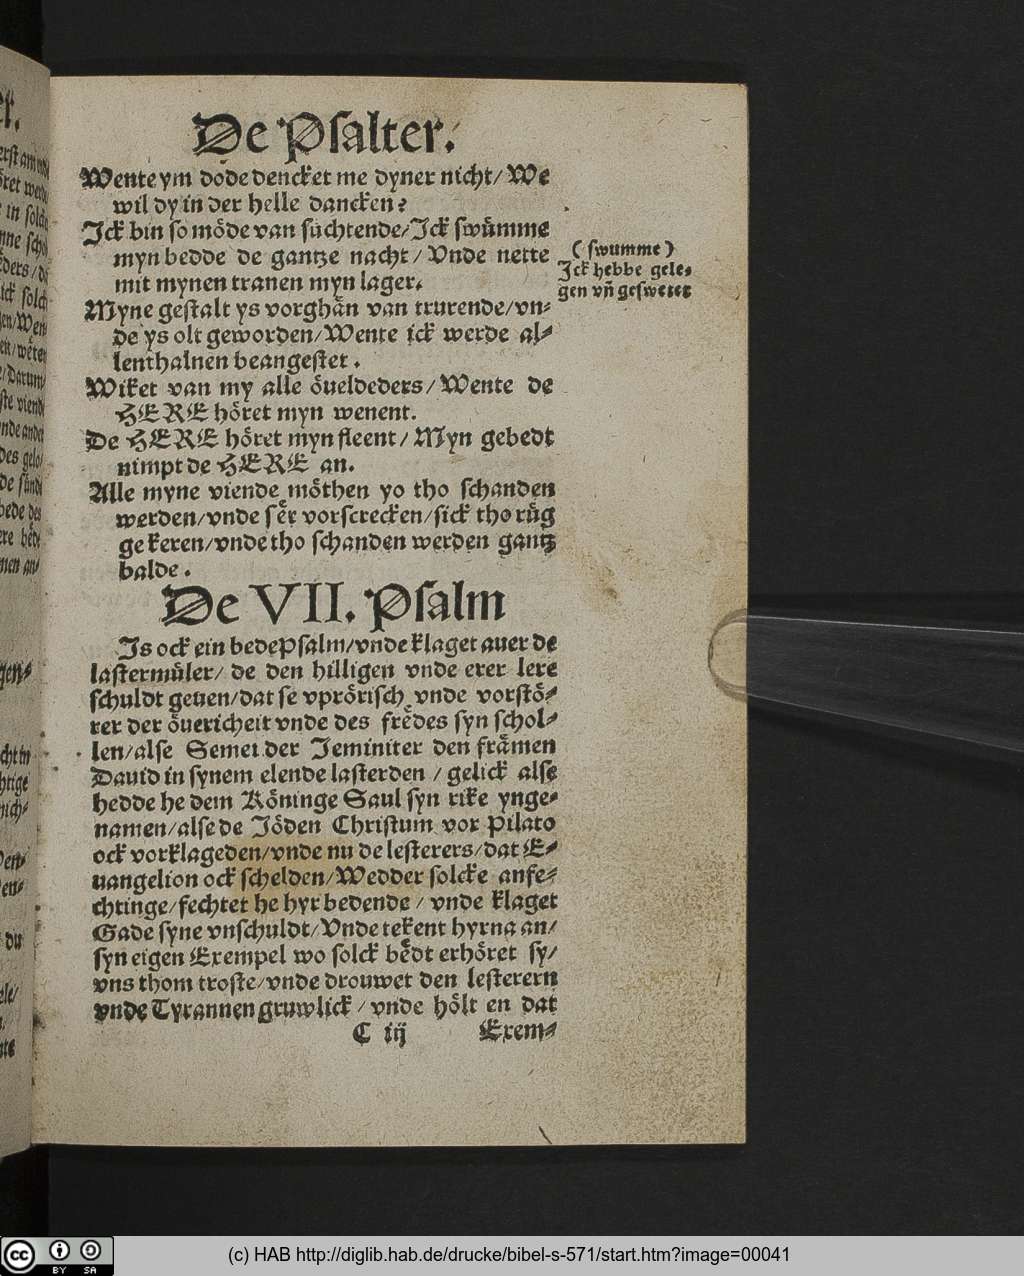 De Psalter.
Wente ym dode dencket me dyner nicht/ We
wil dy in der helle dancken?
Jck bin so möde van süchtende/Jck swümme
myn bedde de gantze nacht/ Vnde nette
mit mynen tranen myn lager.
Myne gestalt ys vorghån van trurende/vn-
de ys olt geworden/Wente ick werde al-
lenthalnen beangestet.
Wiket van my alle öueldeders/Wente de
HERE höret myn wenent.
De HERE höret myn fleent/ Myn gebedt
nimpt de HERE an.
Alle myne viende möthen yo tho schanden
werden/vnde ser vorscrecken/sick tho rüg
ge keren/vnde tho schanden werden gantz
balde.
(swumme)
Jck hebbe gele-
gen vñ geswetet
De VII. Psalm
Js ock ein bedePsalm/vnde klaget auer de
lastermüler/ de den hilligen vnde erer lere
schuldt geuen/dat se vprörisch vnde vorstö-
rer der öuericheit vnde des fredes syn schol-
len/alse Semei der Jeminiter den främen
Dauid in synem elende lasterden/ gelick alse
hedde he dem Köninge Saul syn rike ynge-
namen/alse de Jöden Christum vor Pilato
ock vorklageden/vnde nu de lesterers/dat E-
uangelion ock schelden/Wedder solcke anfe-
chtinge/fechtet he hyr bedende/ vnde klaget
Gade syne vnschuldt/Vnde tekent hyrna an/
syn eigen Exempel wo solck bedt erhöret sy/
vns thom troste/vnde drouwet den lesterern
vnde Tyrannen gruwlick/ vnde hölt en dat
C iij Exem-
(c) HAB http://diglib.hab.de/drucke/bibel-s-571/start.htm?image=00041
cc BY SA